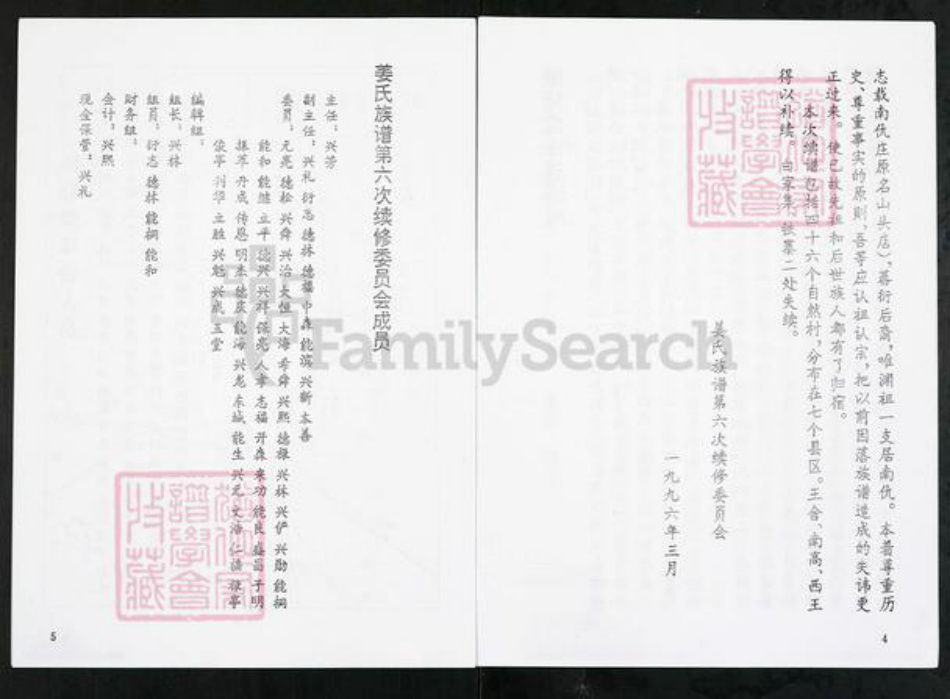 志载南仇庄原名山头店），蕃衍后裔，唯渊祖一支居南仇。本着尊重历
史、尊重事实的原则，吾等应认祖认宗，把以前因落族谱造成的失讳更
正过来。使已故先祖和后世族人都有了归宿。
本次续谱包括四十六个自然村，分布在七个县区。王舍、南高、西王
得以补续。白家集、张寨二处失续。
姜氏族谱第六次续修委员会
一九九六年三月
4
姜氏族谱第六次续修委员会成员
主任：兴芳
副主任：兴礼 衍志 德林 德福 中森 能滨 兴新 太善
委员：元亮 德松 兴舜 兴治 大恒 大海 希舜 兴熙 德振 兴林 兴俨 兴勋 能桐
能和 能继 立平 德兴 兴祥 保亮 人孝 志福 开森 来功 能良 盛昌 于明
丹成 传恩 明来 德庆 能海 兴光 能生 兴元 文海 仁福
俊亭 利华 立胜 兴魁 兴成 玉堂
编辑组：
组长：兴林
组员：衍志 德林 能桐 能和
财务组：
会计：兴熙
现金保管：兴礼
5
FamilySearch
譜學會
收藏
譜學會
收藏